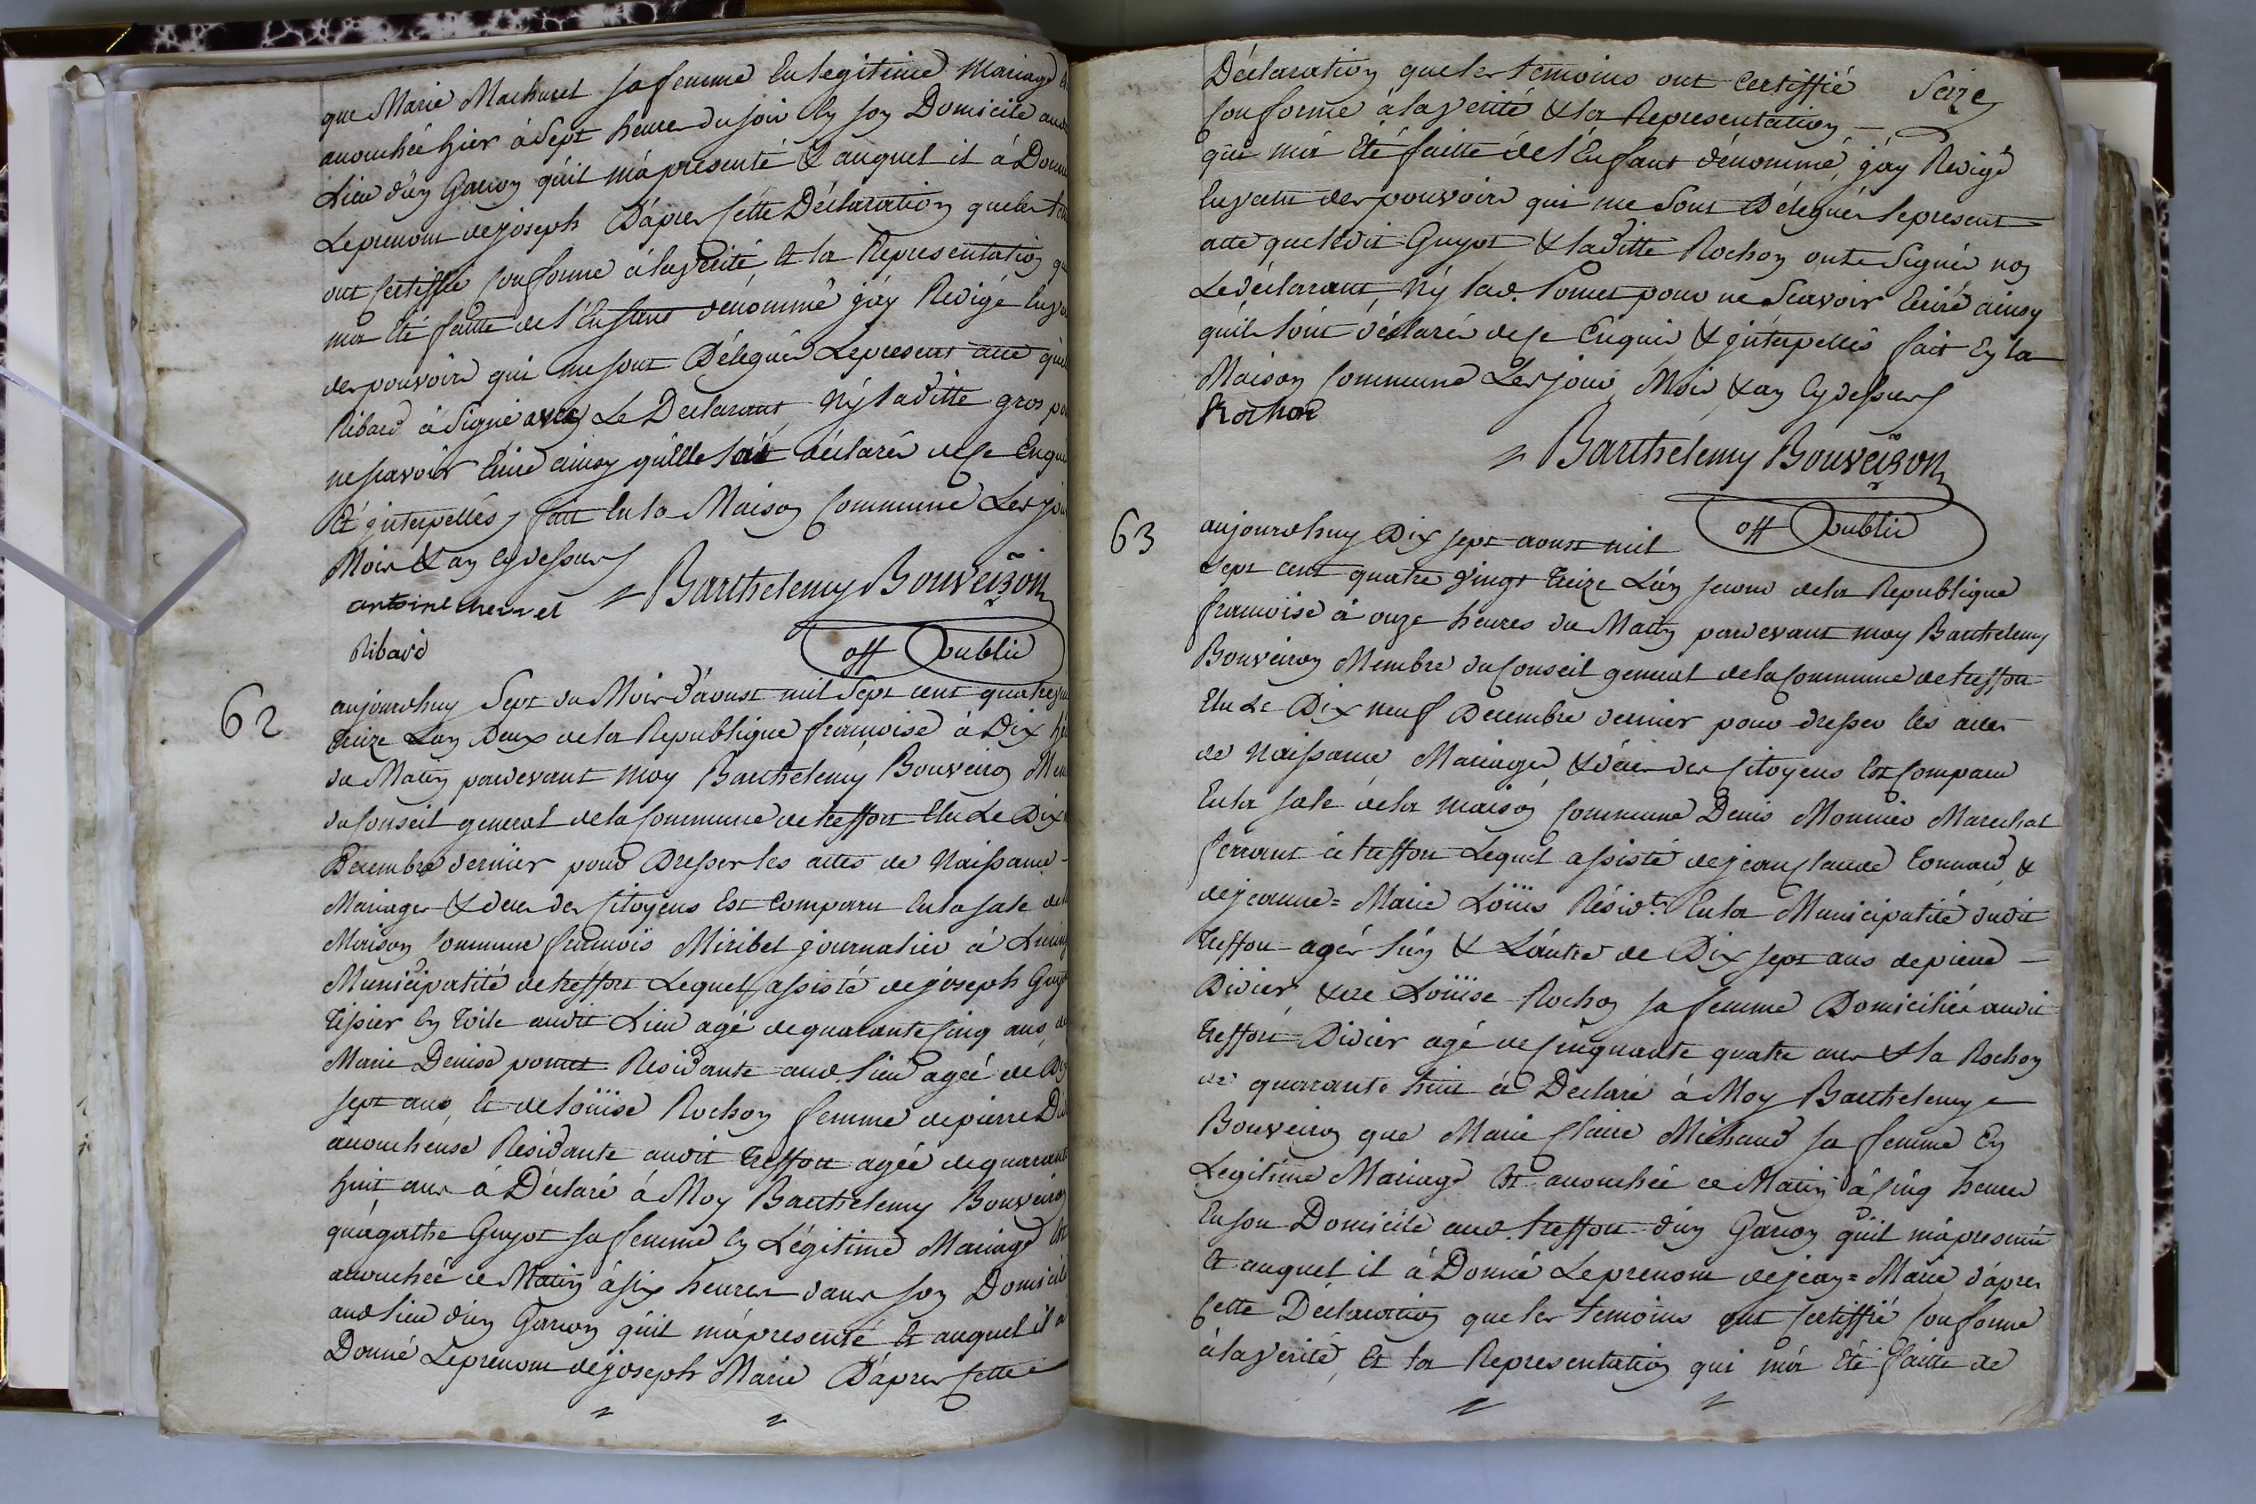 que Marie Machuret sa femme En legitime Mariage
acouchée hier à Sept heure du soir En son Domicile aud.
Lieu d'un Garçon qu'il m'a presenté & auquel il à Donné
Le prenom de joseph D'apres Cette Déclaration que les
ont Certiffié Conforme à la verité Et la Representation
m'a Eté faitte de l'Enfant dénommé j'ay Redigé En
des pouvoirs qui me sont Délegués Le present acte que
Ribard à Signé avec Le Declarant Ny laditte gros
ne scavoir Ecrire ainsy qu'Elle l'a déclaré de ce Enquis
Et jnterpellés, fait En la Maison Commune Les jour
Mois & an Cy dessus
Barthelemy Bouveiron
antoine
Ribard
off public
62
aujourdhuy Sept du Mois d'aoust mil Sept cent quatre
treize L'an Deux de la Republique françoise à Dix
du Matin pardevant Moy Barthelemy Bouveiron
du Conseil general de la Commune de treffort Elu Le Dix
Decembre dernier pour Dresser les actes de Naissance
Mariages & deces des Citoyens Est Comparu En la sale de
Maison Commune françois Miribel journalier à
Municipalité de treffort Lequel assisté de joseph Guyot
tissier En toile audit Lieu agé de quarante Cinq ans,
Marie Denise pomet Residante aud. lieu agée de Dix
sept ans, Et de Loüise Rochon femme de pierre
acoucheuse Residante audit treffort agée de quarante
huit ans à Déclaré à Moy Barthelemy Bouveiron
qu'agathe Guyot sa femme En Légitime Mariage Est
acouchée ce Matin à six heures dans son Domicile
aud lieu d'un Garçon qu'il m'a presenté Et auquel il a
Donné Le prenom de joseph Marie D'apres Cette
Déclaration que les temoins ont Certiffié Seize
Conforme à la verité & la Representation
qui m'a Eté faitte de l'Enfant dénommé, j'ay Redigé
En vertu des pouvoirs qui me sont Délegués le present
acte que ledit Guyot & laditte Rochon ont Signé non
Le déclarant, Ny lad. Pomet pour ne Scavoir Ecrire ainsy
qu'ils l'ont déclarés de ce Enquis & jnterpellés fait En la
Maison Commune Les jour, Mois, & an Cy dessus
Rochon
Barthelemy Bouveiron
off public
63
aujourdhuy Dix sept aoust mil
Sept cent quatre vingt treize L'an second de la Republique
francoise à onze heures du Matin pardevant moy Barthelemy
Bouveiron Membre du Conseil general de la Commune de treffort
Elu Le Dix neuf Decembre dernier pour dresser les actes
de Naissance, Mariages, & décès des Citoyens Est Comparu
En la sale de la maison Commune Denis Monnier Marechal
ferrant à treffort Lequel assisté de jean Claude &
de jeanne = Marie Loüis Résidts. En la Municipalité dudit
treffort agés l'un & L'autre de Dix sept ans de pierre
Didier, & de Loüise Rochon sa femme Domiciliés audit
treffort Didier agé de Cinquante quatre ans & la Rochon
de quarante huit à Declaré à Moy Barthelemy
Bouveiron que Marie Claire Michaud sa femme En
Legitime Mariage Est acouchée ce Matin à Cinq heures
En son Domicile aud. treffort d'un Garçon qu'il m'a presenté
Et auquel il à Donné Le prenom de jean = Marie d'apres
Cette Déclaration que les temoins ont Certiffié Conforme
à la verité, Et la Representation qui m'a Eté faitte de